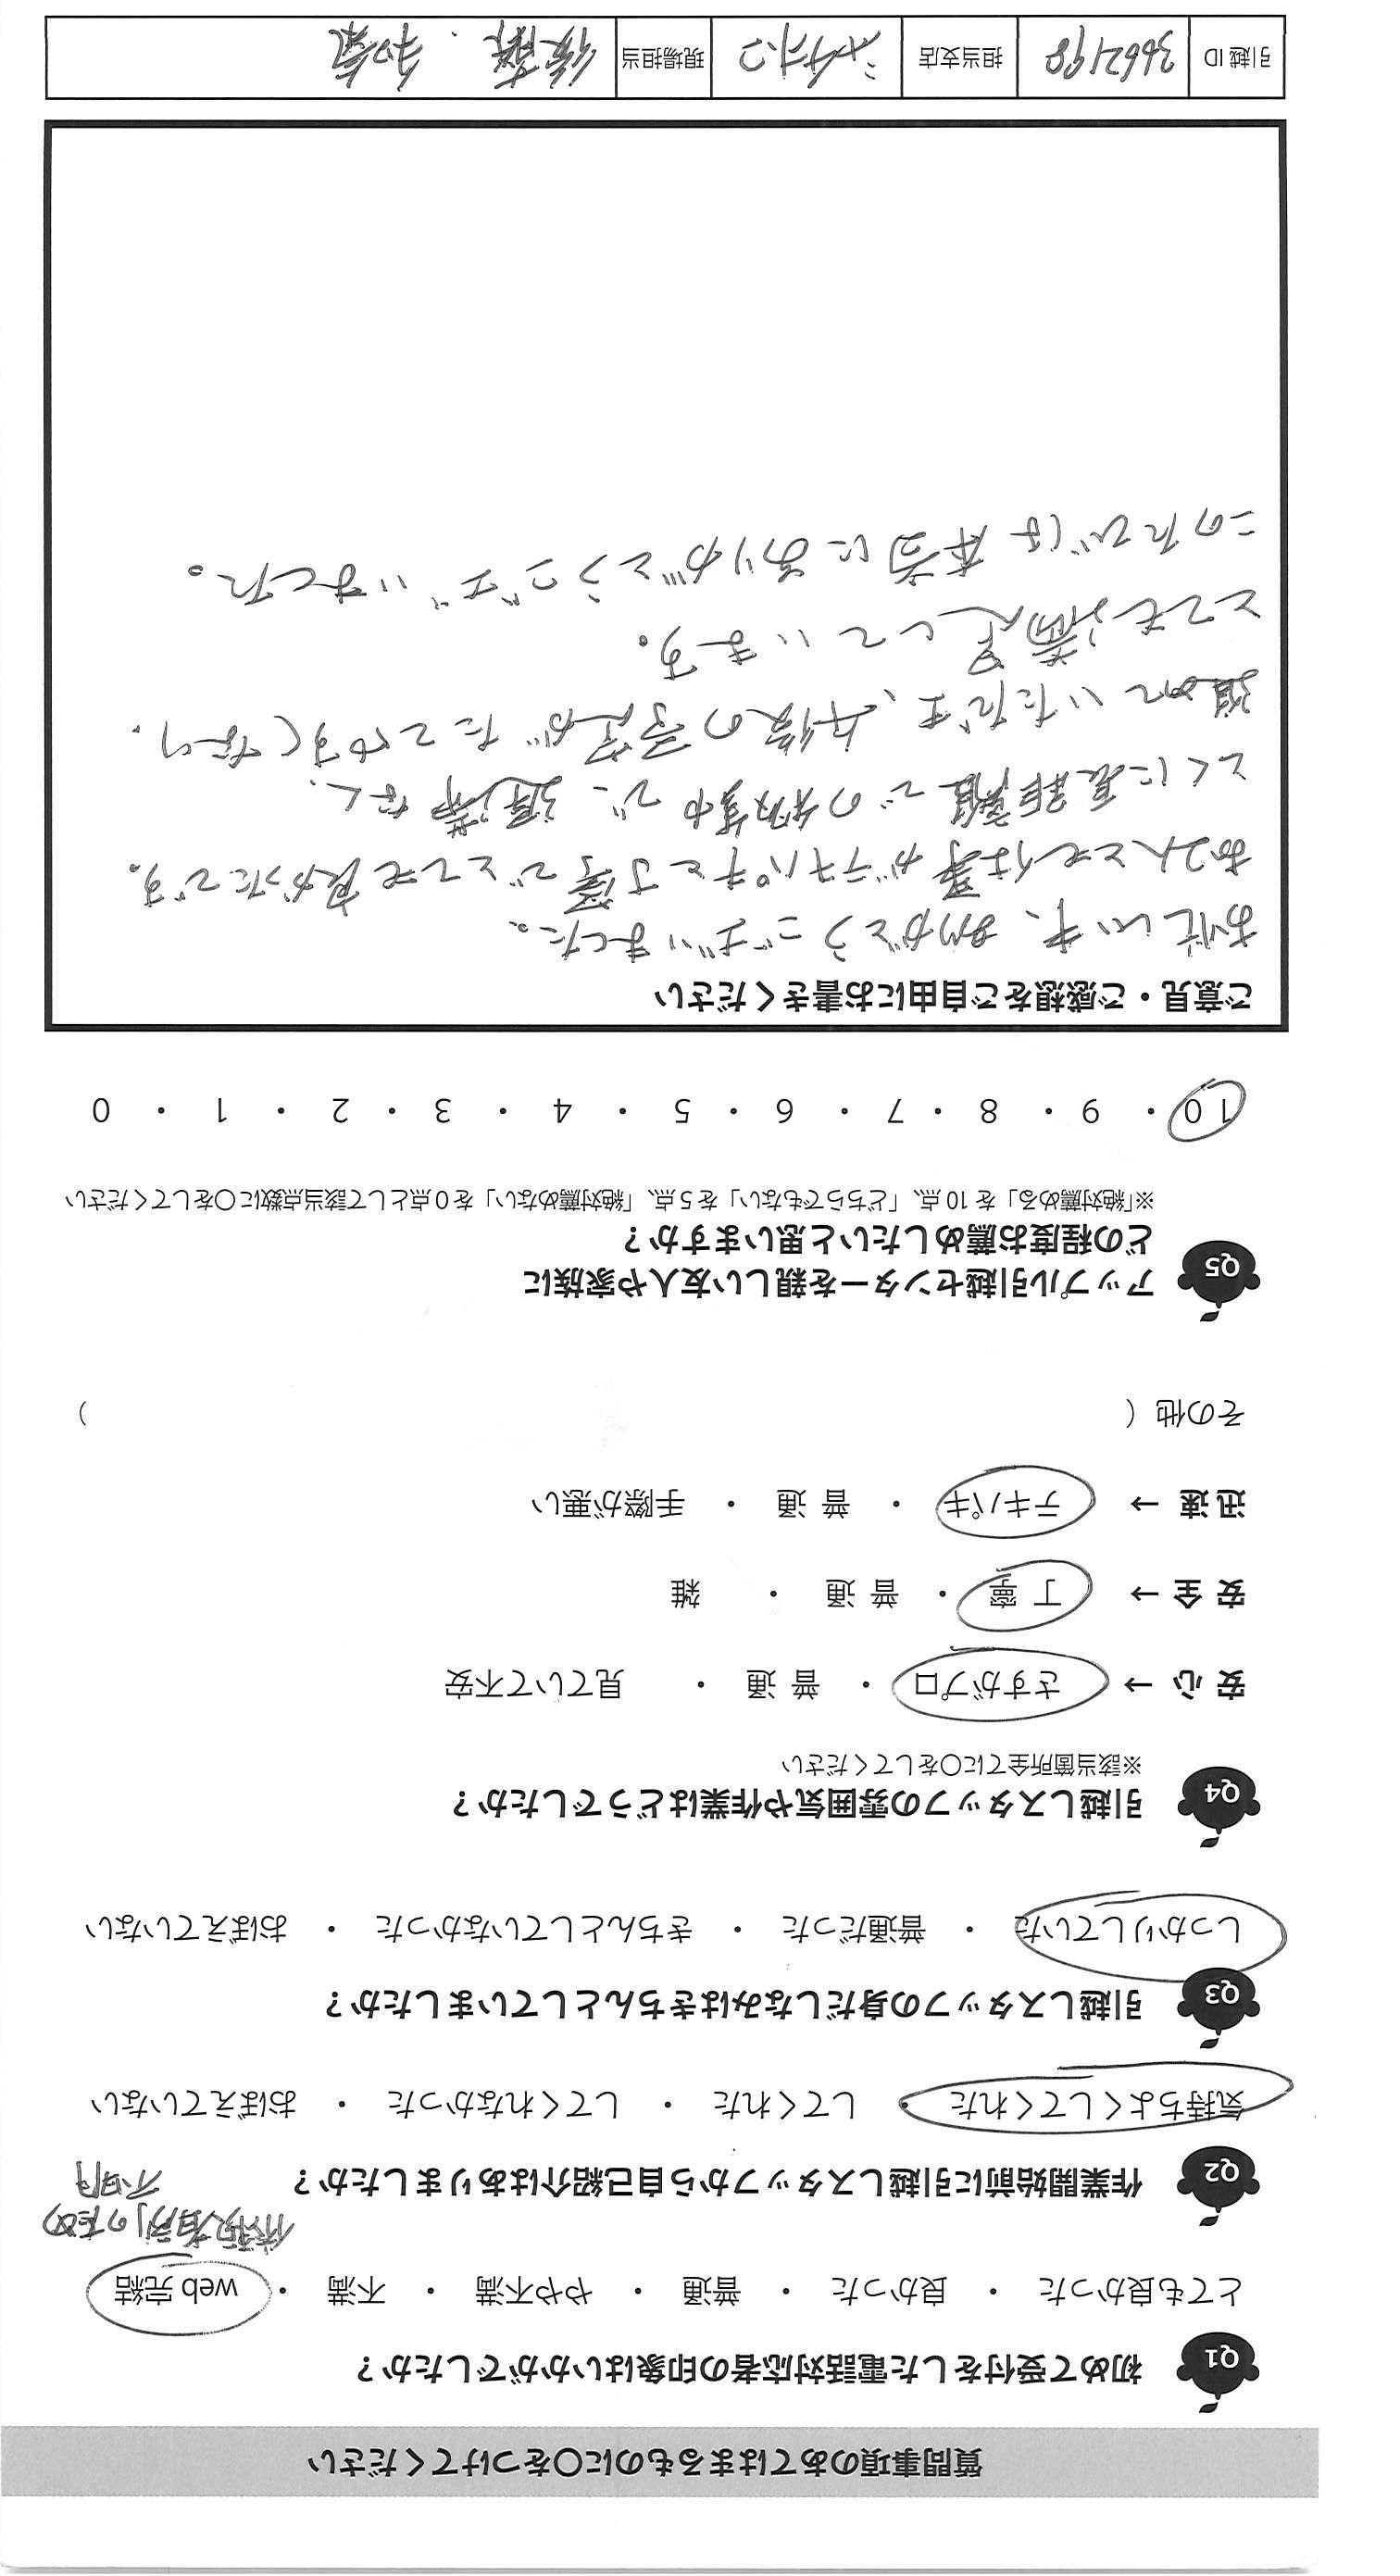 質問事項のあてはまるものに〇をつけてください
Q1 初めて受付をした電話対応者の印象はいかがでしたか？
とても良かった ・ 良かった ・ 普通 ・ やや不満 ・ 不満 ・ web 完結
依頼者別のため
不明
Q2 作業開始前に引越しスタッフから自己紹介はありましたか？
気持ちよくしてくれた ・ してくれた ・ してくれなかった ・ おぼえていない
Q3 引越しスタッフの身だしなみはきちんとしていましたか？
しっかりしていた ・ 普通だった ・ きちんとしていなかった ・ おぼえていない
Q4 引越しスタッフの雰囲気や作業はどうでしたか？
※該当箇所全てに〇をしてください
安心 → さすがプロ ・ 普通 ・ 見ていて不安
安全 → 丁寧 ・ 普通 ・ 雑
迅速 → テキパキ ・ 普通 ・ 手際が悪い
その他（ ）
Q5 アップル引越センターを親しい友人や家族に
どの程度お薦めしたいと思いますか？
※「絶対薦める」を 10 点、「どちらでもない」を 5 点、「絶対薦めない」を 0 点として該当点数に〇をしてください
10 ・ 9 ・ 8 ・ 7 ・ 6 ・ 5 ・ 4 ・ 3 ・ 2 ・ 1 ・ 0
ご意見・ご感想をご自由にお書きください
お忙しい中、ありがとうございました。
お2人とも仕事がテキパキと丁寧でとても良かったです。
とくに長距離での移動中で、遅滞なく、
進めていただき、午後の予定がたてやすくなり、
とても満足しています。
このたびは本当にありがとうございました。
引越 ID 3662198 担当支店 現場担当 後藤・和気